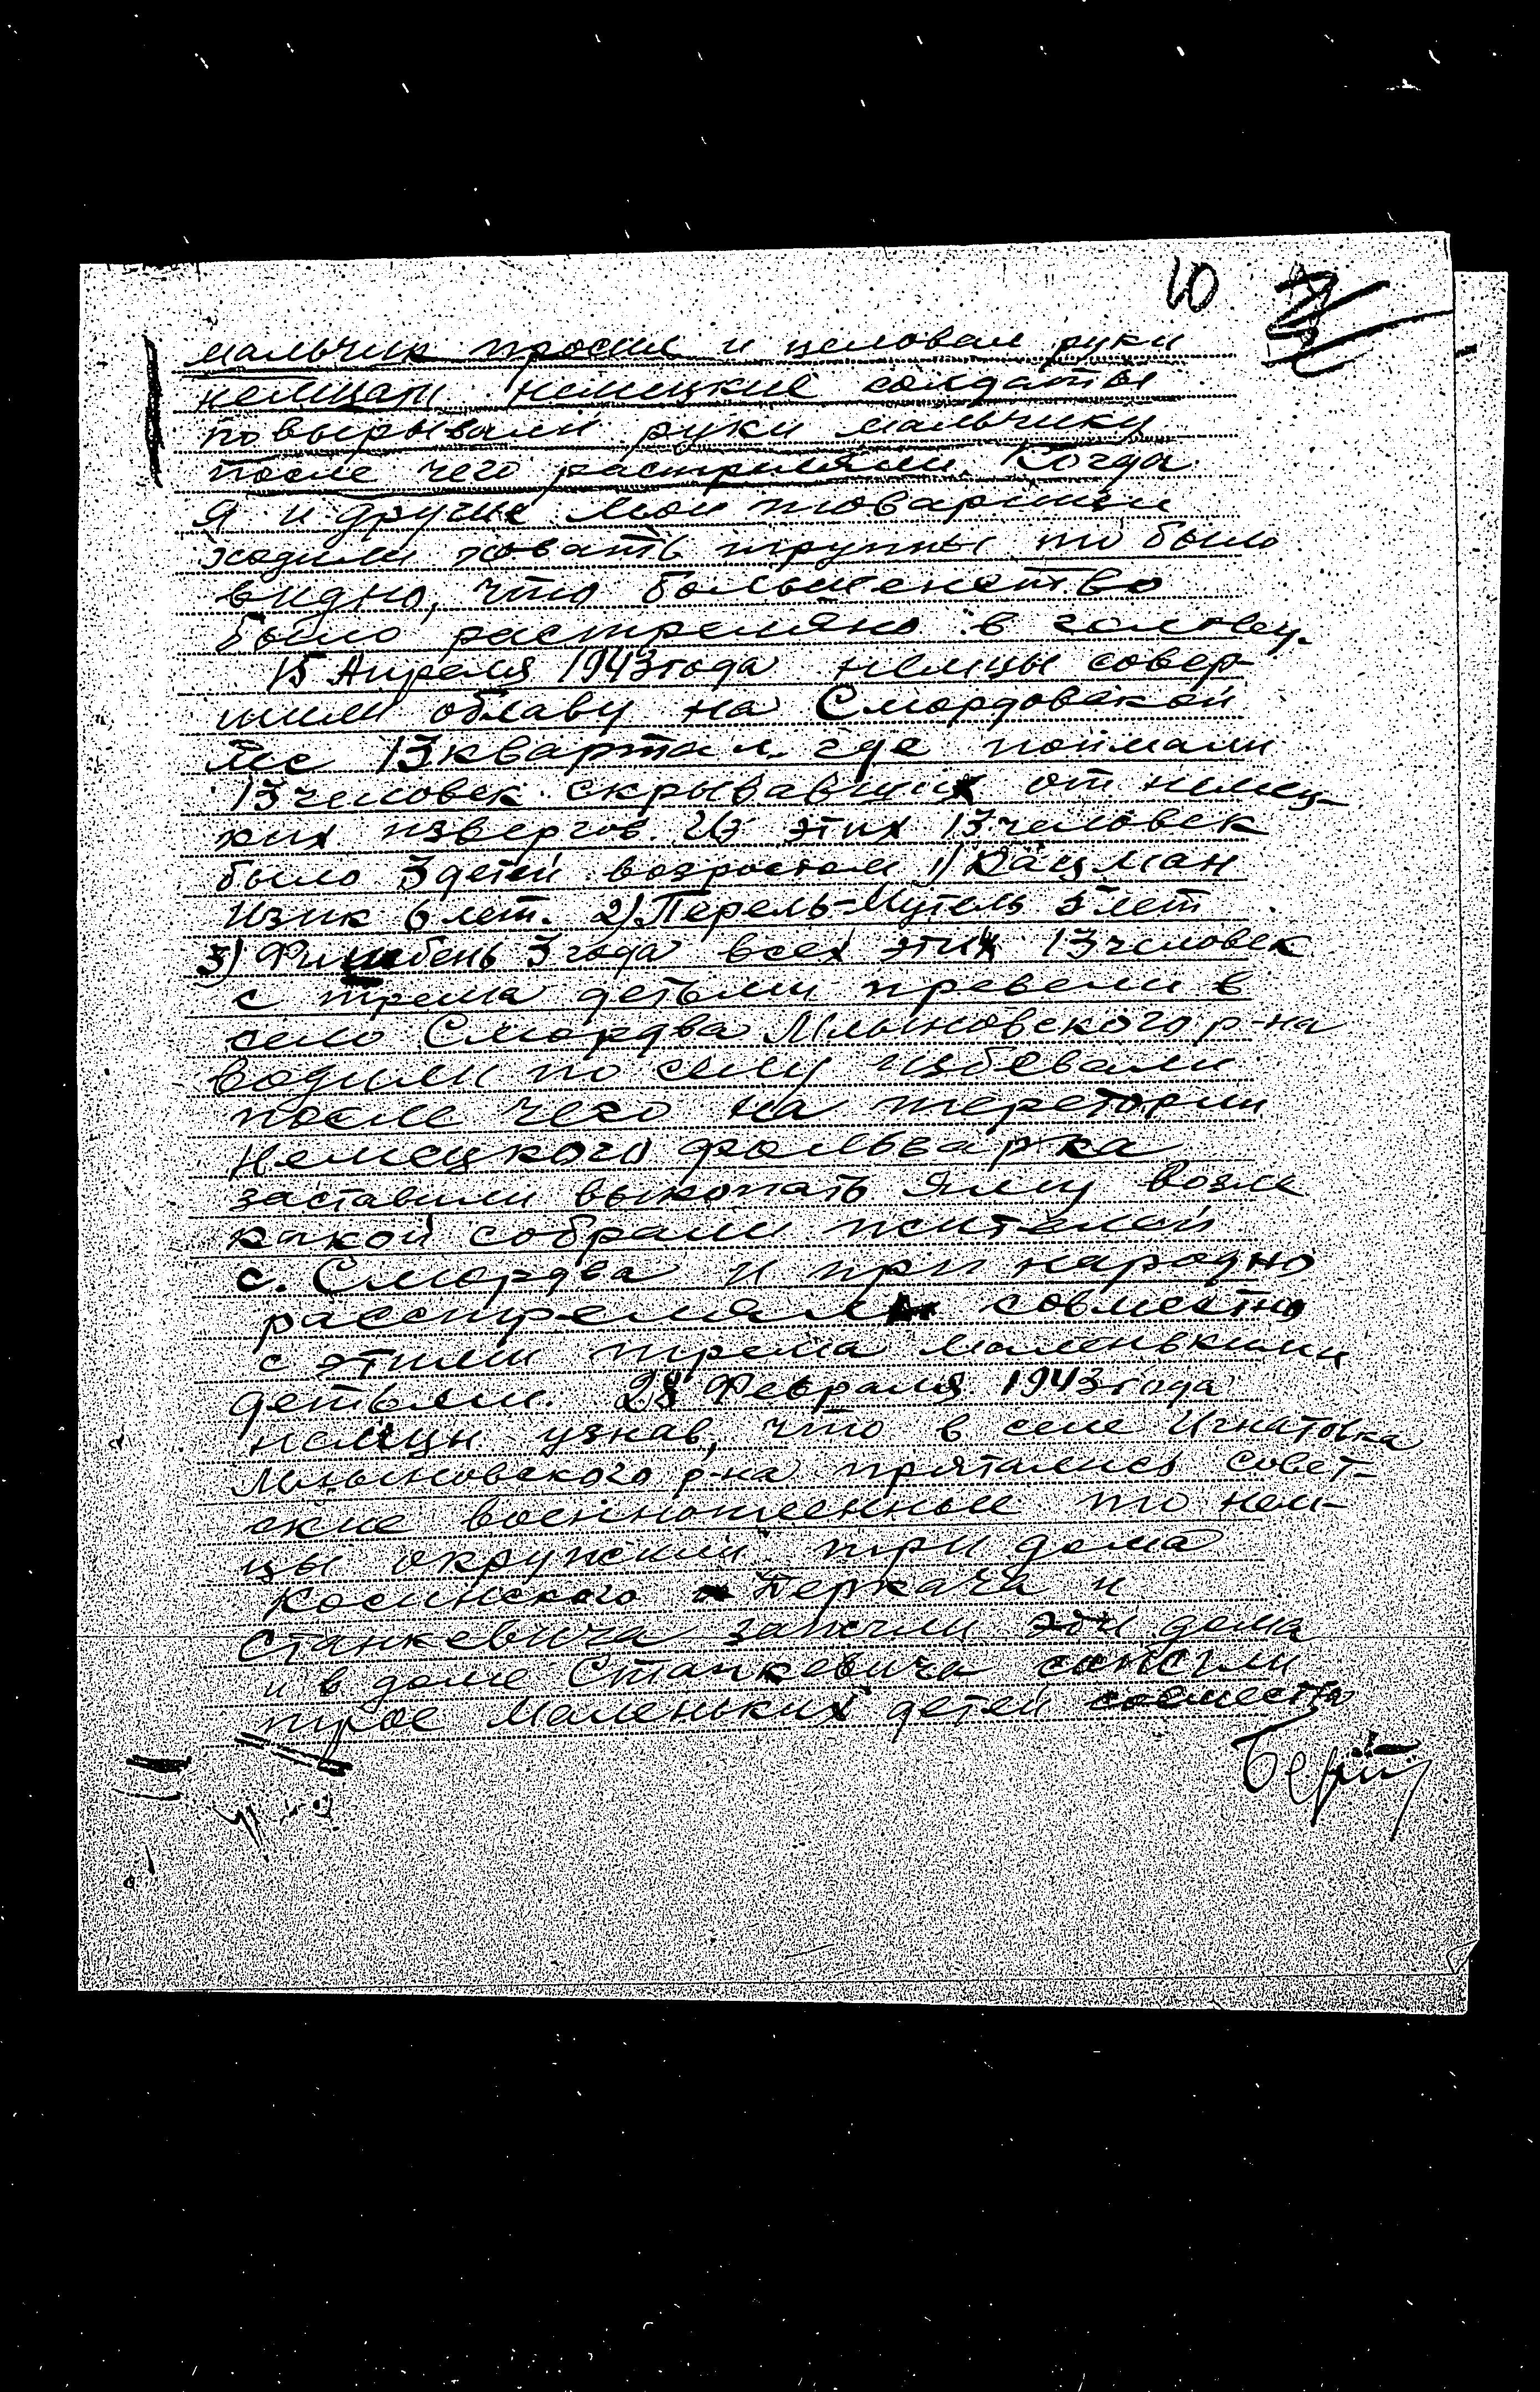 10
мальчик просил и целовал руки
немцам немецкие солдаты
повырывали руки мальчику
после чего растриляли. Когда
я и другие мои товарищи
ходили ховать трупы то было
видно, что большенство
было растреляно в голову.
15 Апреля 1943 года немцы совер-
шили облаву на Смордовской
лес 13 квартал где поймали
13 человек скрывавших от немец-
ких извергов. Из этих 13 человек
было 3 детей возростом 1) Кацман
Изик 6 лет. 2) Перель-Мутель 5 лет
3) Фишбень 3 года всех этих 13 человек
с трема детьми превели в
село Смордва Млыновского р-на
водили по селу избевали
после чего на теретории
немецкого фольварка
заставили выкопать яму возле
какой собрали жителей
с. Смордва и при народно
расстреляли совместно
с этими трема маленькими
детьми. 28 Февраля 1943 года
немцы узнав, что в селе Игнатовка
Млыновского р-на прятались совет-
ские военнопленные то нем-
цы окружили три дома
Косинского Перкача и
Станкевича зажгли эти дома
и в доме Станкевича сожгли
трое маленьких детей совместно